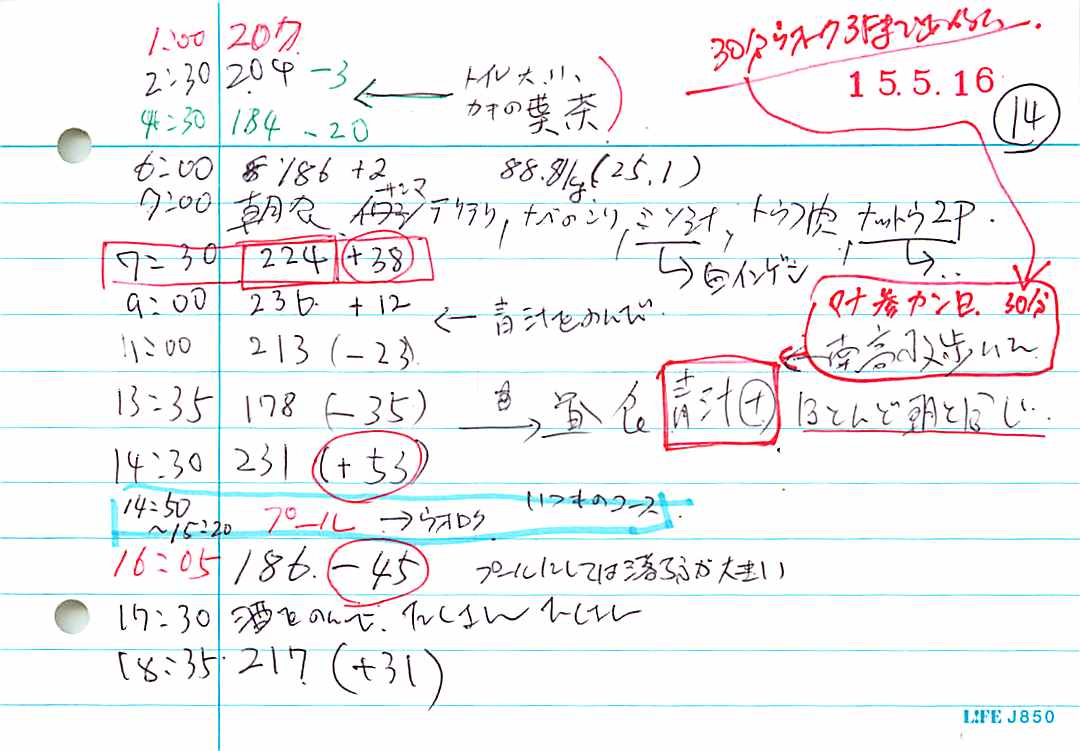 30分ウォーク
15.5.16
14
1:00 207
2:30 204 -3
← トイレ大い、
カキの葉茶
4:30 184 -20
6:00 186 +2 88.8kg (25.1)
7:00 朝食 サンマ テリテリ, ナベのこり, ミソ汁, トウフ, ナットウ2P.
→白インゲン
7:30 224 +38
9:00 236 +12
← 青汁をのんで.
30分
南高 歩いて
11:00 213 (-23)
13:35 178 (-35) → 昼食 青汁 + ほとんど朝と同じ..
14:30 231 (+53)
14:50
~15:20 プール →ウオロク いつものコース
16:05 186. -45 プールにしては落ち方が大きい
17:30 酒をのんで.
18:35 217 (+31)
LIFE J850